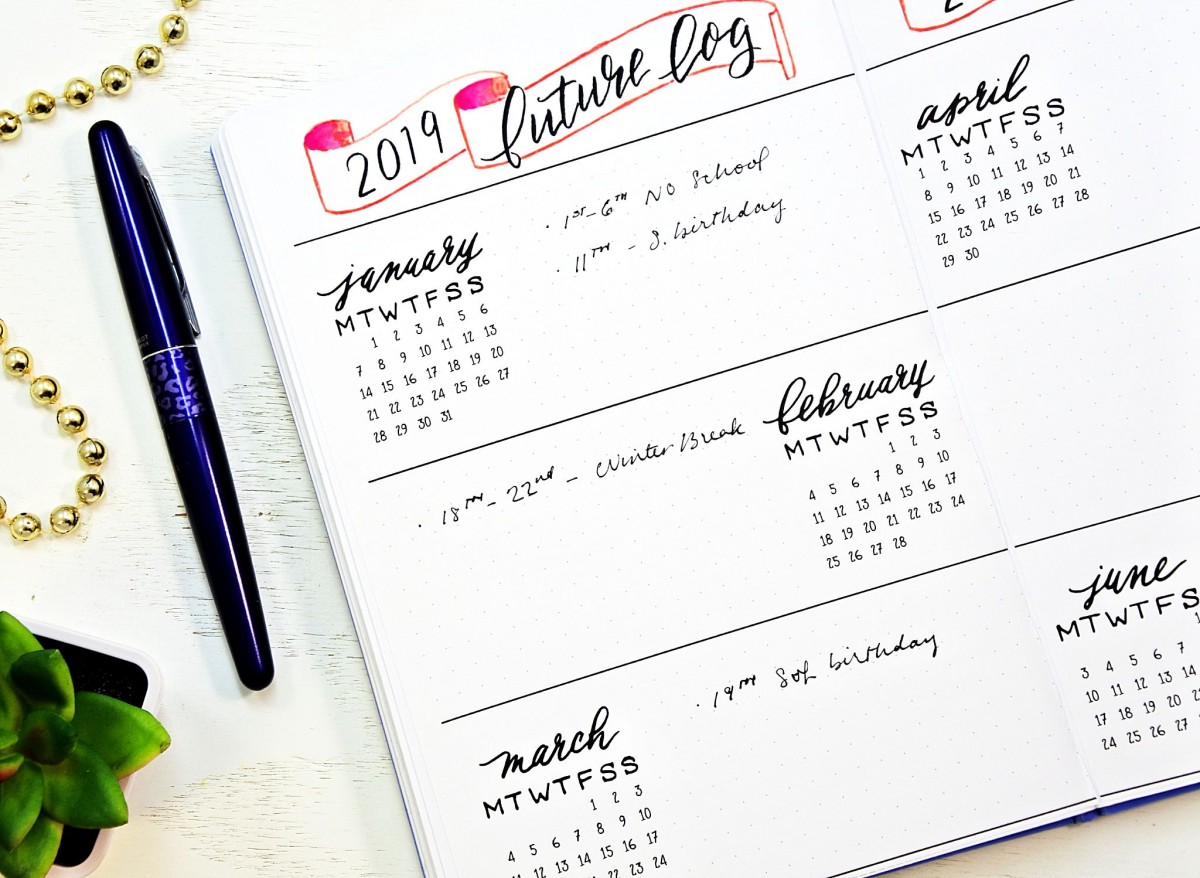 2019 future log
january
M T W T F S S
1 2 3 4 5 6
7 8 9 10 11 12 13
14 15 16 17 18 19 20
21 22 23 24 25 26 27
28 29 30 31
· 1ST-6TH NO School
· 11TH - S. birthday
· 18TH - 22nd - Winter Break
february
M T W T F S S
1 2 3
4 5 6 7 8 9 10
11 12 13 14 15 16 17
18 19 20 21 22 23 24
25 26 27 28
march
M T W T F S S
1 2 3
4 5 6 7 8 9 10
11 12 13 14 15 16 17
21 22 23 24
· 19TH birthday
april
M T W T F S S
1 2 3 4 5 6 7
8 9 10 11 12 13 14
15 16 17 18 19 20 21
22 23 24 25 26 27 28
29 30
june
M T W T F S
1
3 4 5 6 7
10 11 12 13 14
17 18 19 20
24 25 26 27